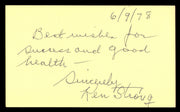 6/9/78
Best wishes for
success and good
health —
Sincerely
Ken